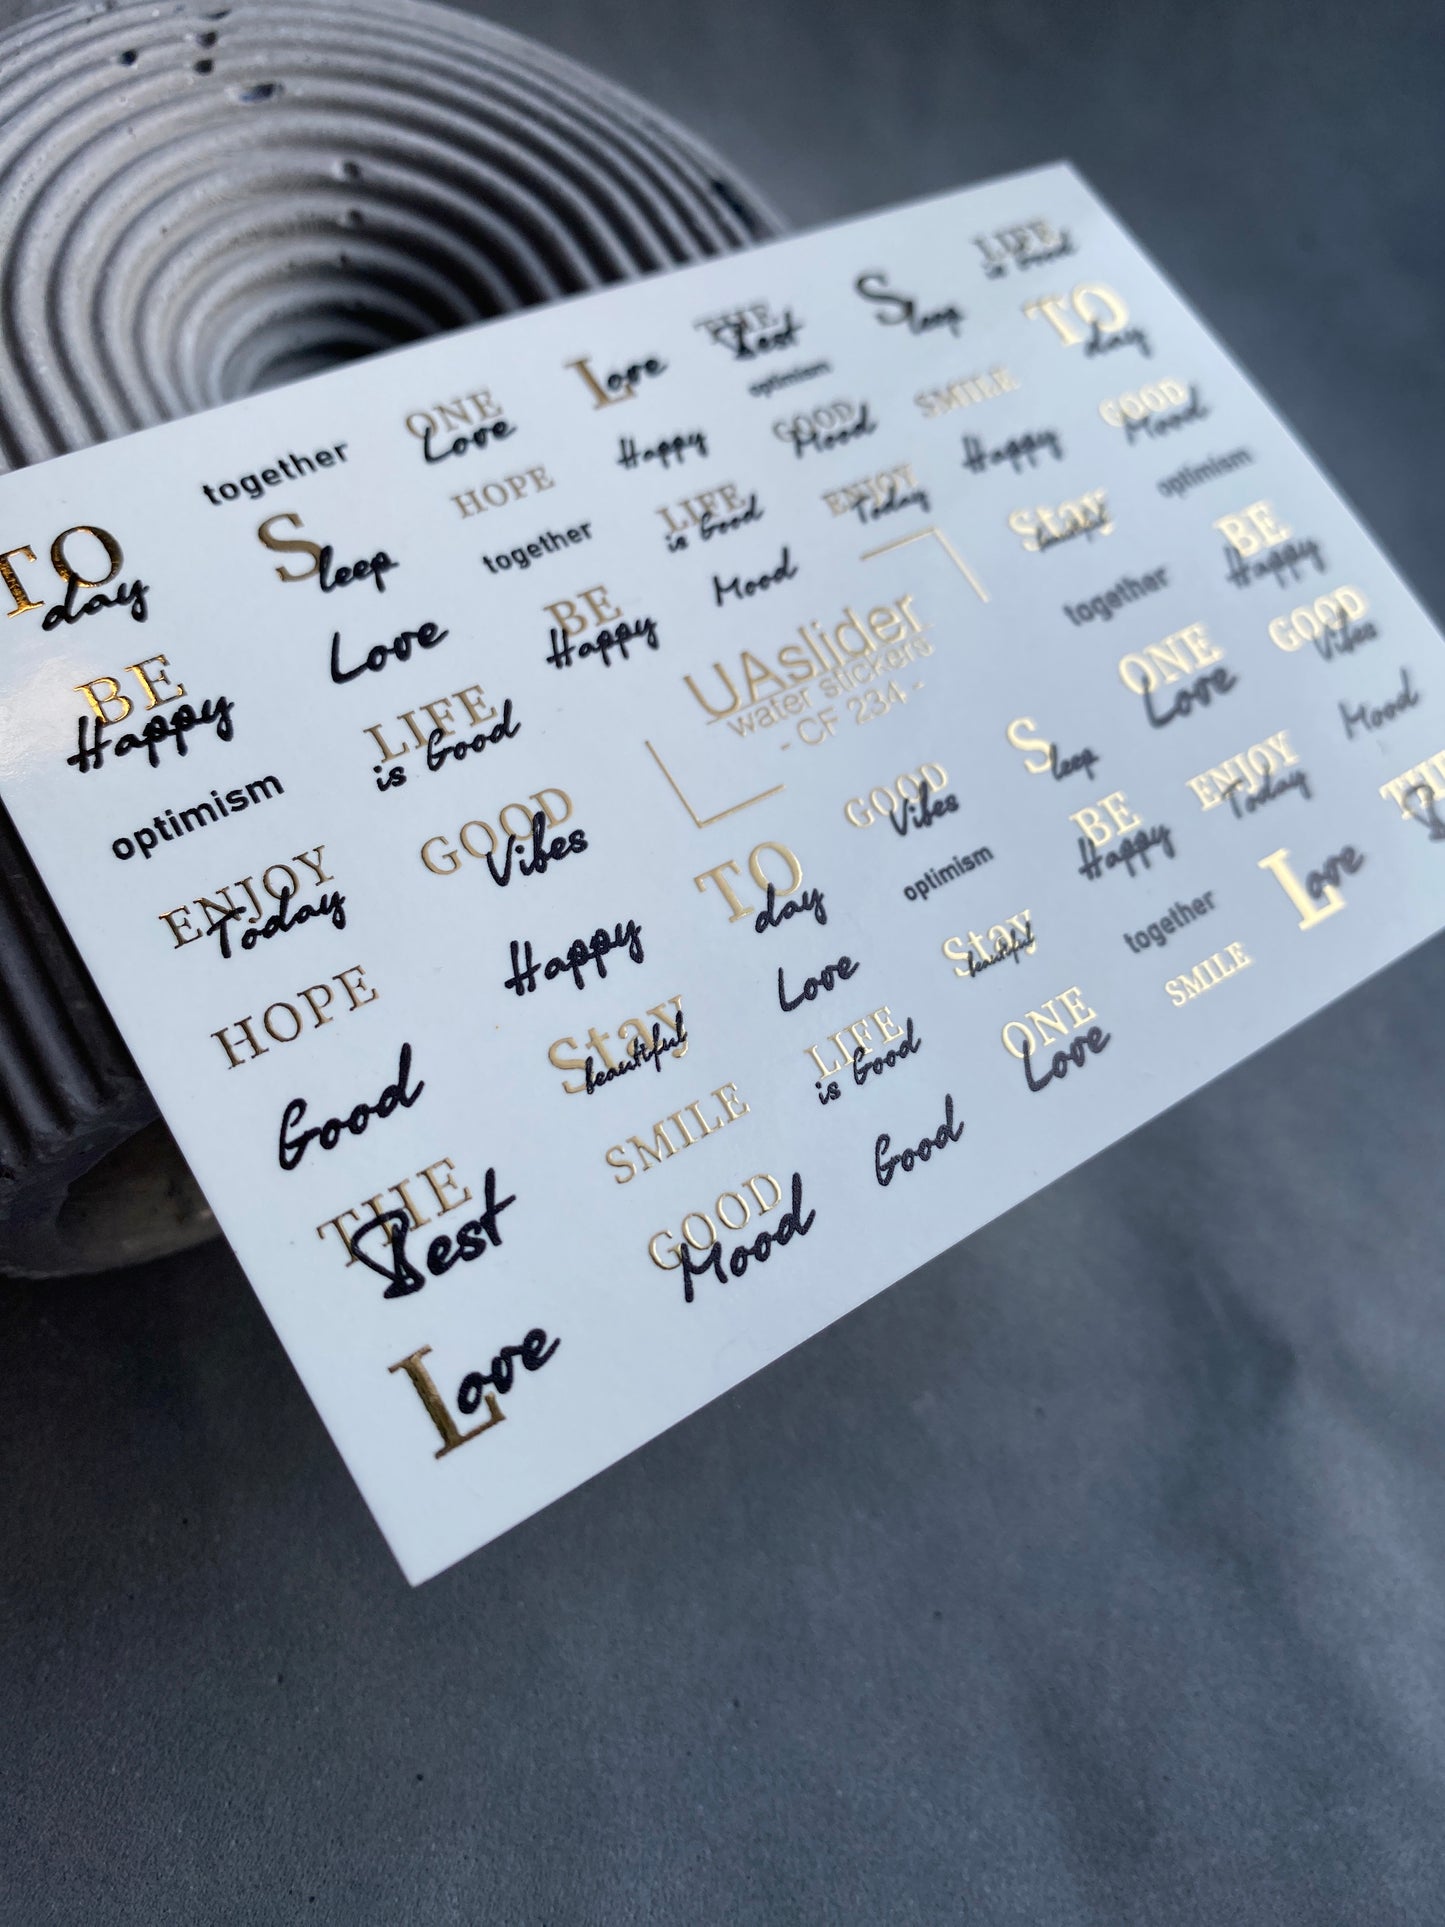 LIFE
is Good
Sleep
THE
Best
TO
day
Love
optimism
ONE
Love
SMILE
GOOD
Mood
GOOD
Mood
together
Happy
Happy
optimism
HOPE
ENJOY
Today
LIFE
is Good
Stay
beautiful
BE
Happy
TO
day
Sleep
together
Mood
together
GOOD
Vibes
Love
BE
Happy
UAslider
water stickers
- CF 234 -
ONE
Love
Mood
BE
Happy
LIFE
is Good
Sleep
ENJOY
Today
THE
optimism
GOOD
Vibes
GOOD
Vibes
BE
Happy
Love
ENJOY
Today
TO
day
optimism
together
Happy
Stay
beautiful
SMILE
HOPE
Love
ONE
Love
Stay
beautiful
LIFE
is Good
Good
SMILE
Good
THE
Best
GOOD
Mood
Love